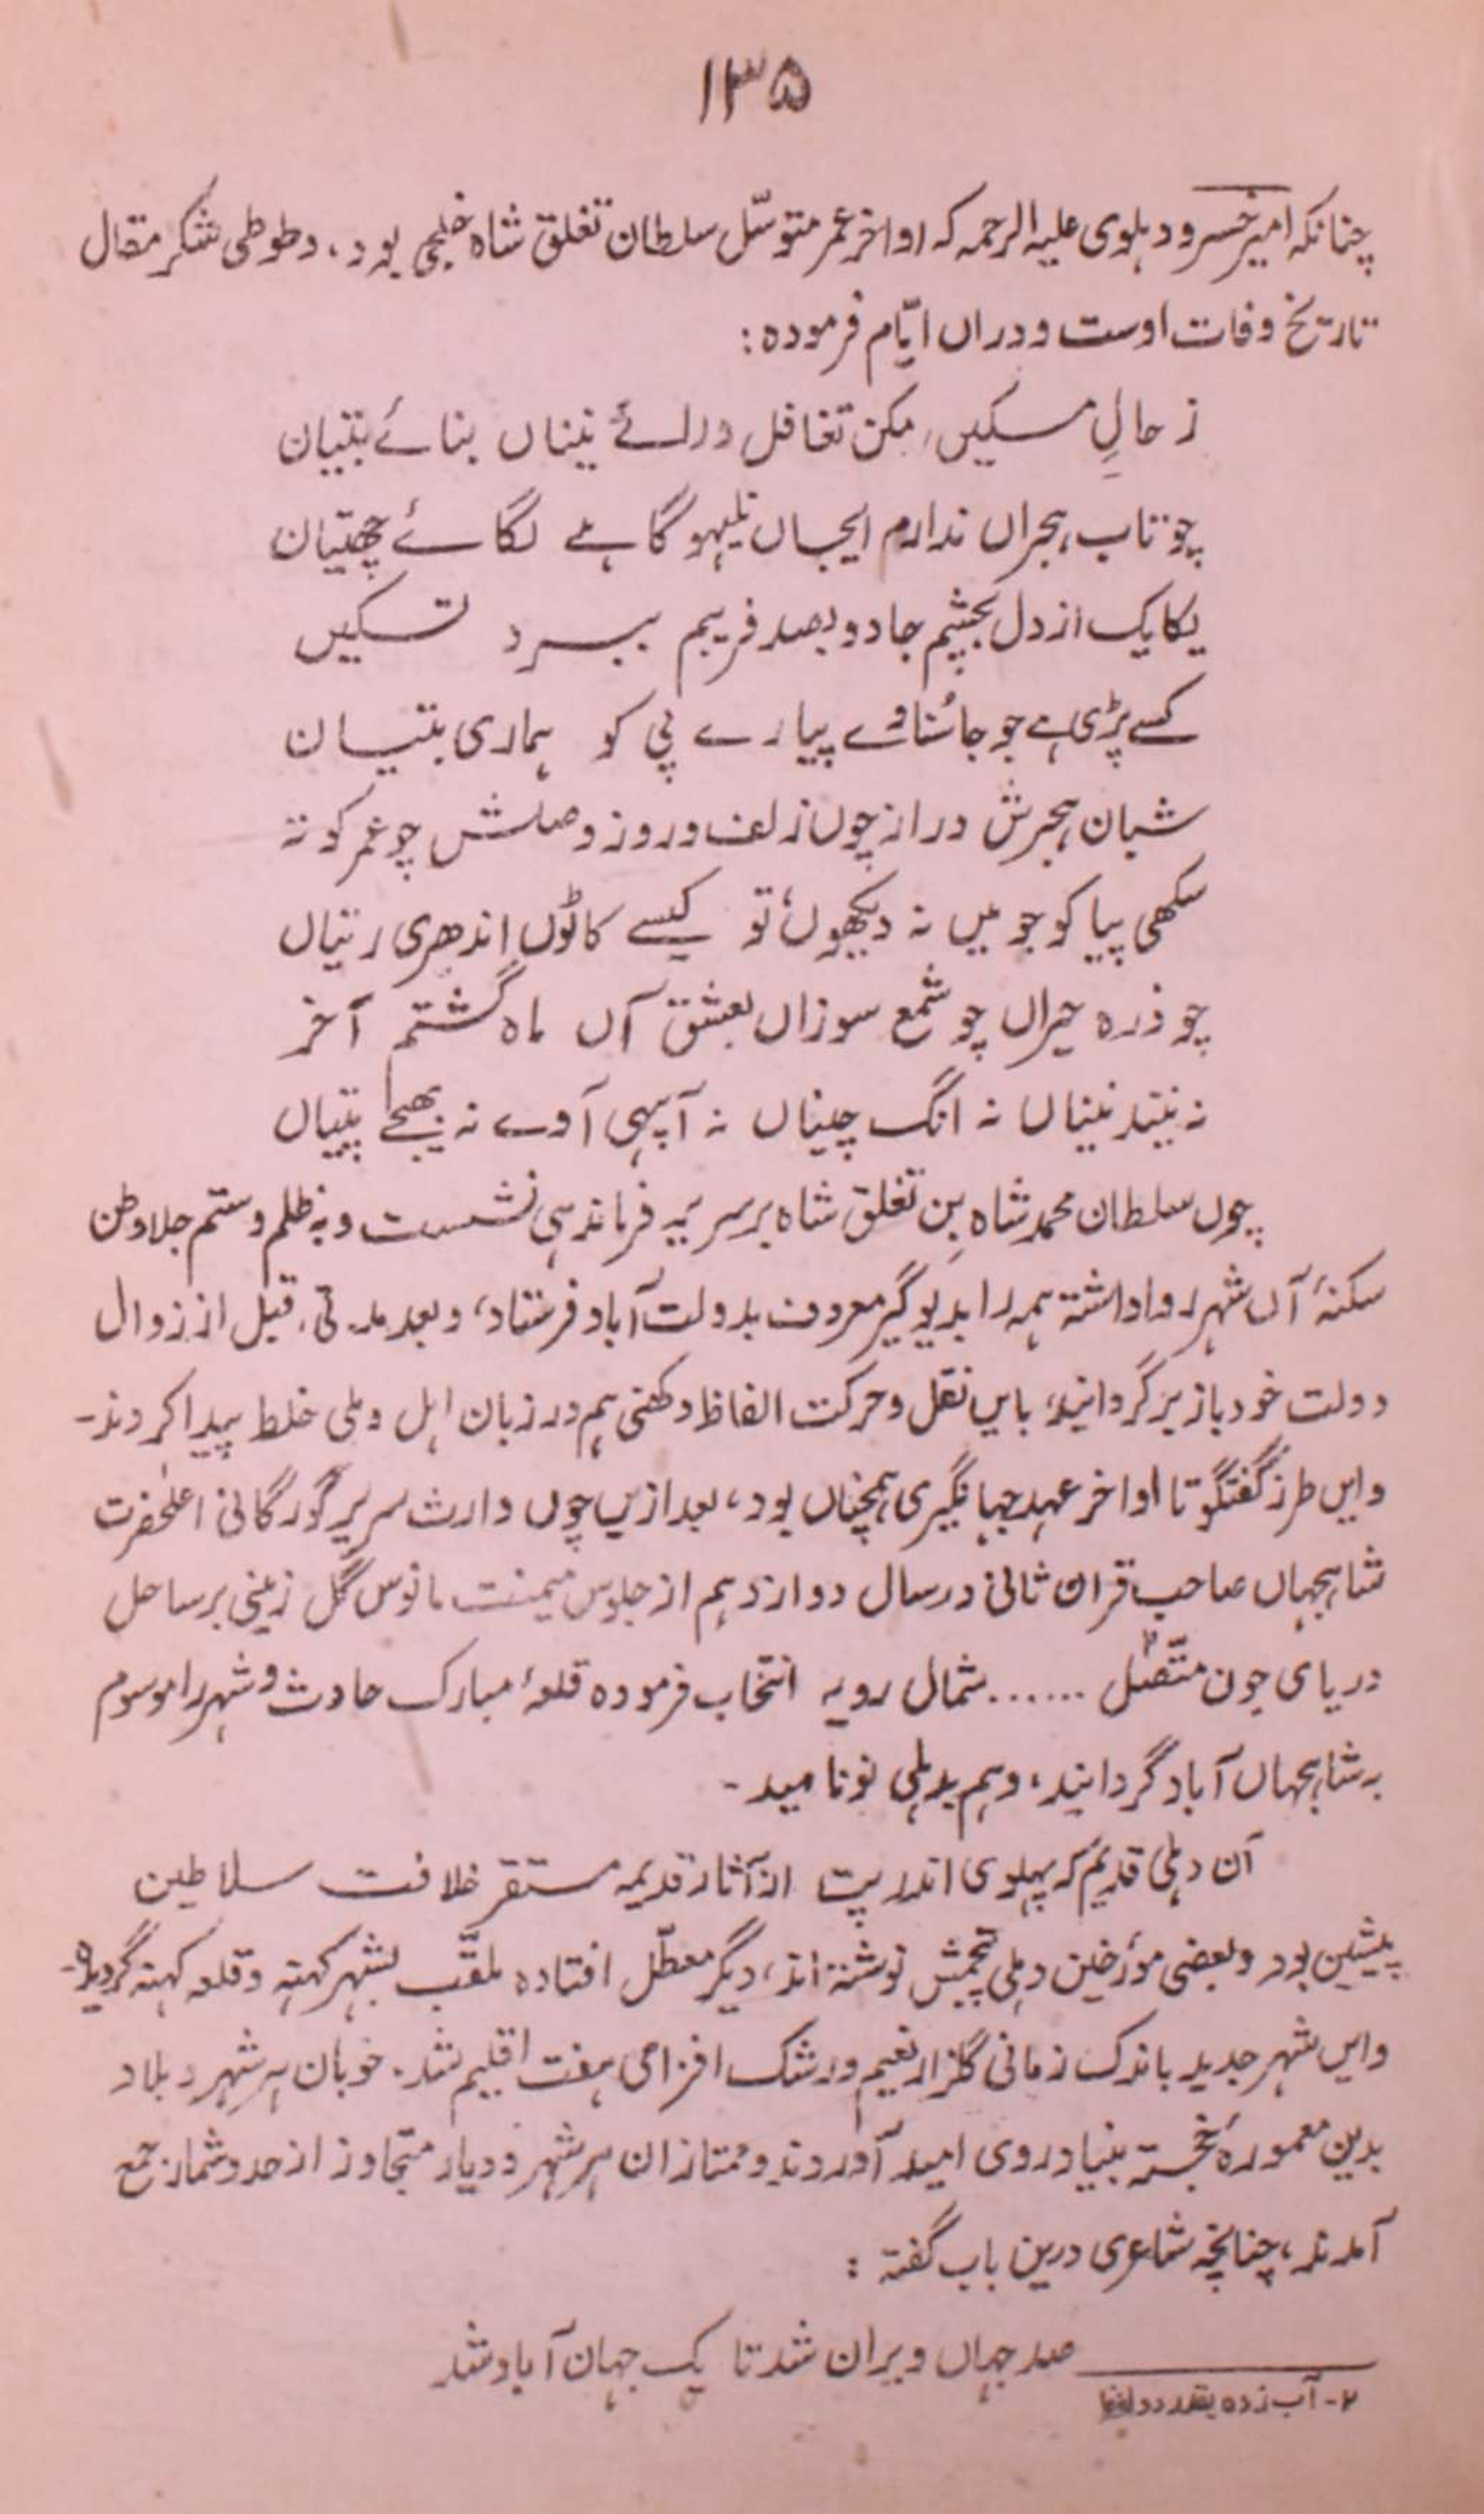 ۱۳۵
چنانکہ امیر خسرو دہلوی علیہ الرحمہ کہ اواخر عمر متوسّل سلطان تغلق شاہ خلجی بود، وطوطی شکر مقال
تاریخ وفات اوست ودراں ایّام فرمودہ:
ز حالِ مسکیں مکن تغافل درائے نیناں بنائے بتیان
چو تاب ہجراں ندارم ایجاں نلیہو گاہے لگائے چھتیان
یکایک از دل بچشم جادو بصد فریبم ببرد تسکیں
کسے پڑی ہے جو جا سُناوے پیارے پی کو ہماری بتیان
شبان ہجرش دراز چوں زلف وروز وصلش چو عمر کوتہ
سکھی پیا کو جو میں نہ دیکھوں تو کیسے کاٹوں اندھری رتیاں
چو ذرہ حیراں چو شمع سوزاں بعشق آں ماہ گشتم آخر
نہ نیند نیناں نہ انگ چیناں نہ آپہی آوے نہ بھیجے پتیاں
چوں سلطان محمد شاہ بِن تغلق شاہ بر سریر فرماندہی نشست وبہ ظلم وستم جلا وطن
سکنۂ آں شہر روا داشتہ ہمہ را بدیوگیر معروف بدولت آباد فرستاد، وبعد مدتی، قبل از زوال
دولت خود باز بر گردانید، بایں نقل وحرکت الفاظ دکھنی ہم در زبان اہل دہلی خلط پیدا کردند۔
وایں طرز گفتگو تا اواخر عہد جہانگیری ہمچناں بود، بعد ازیں چوں وارث سریر گورگانی اعلٰحضرت
شاہجہاں صاحب قران ثانی در سال دوازدہم از جلوس میمنت مانوس گل زمینی بر ساحل
دریای جون متّصل ...... شمال رویہ انتخاب فرمودہ قلعۂ مبارک حادث و شہر را موسوم
بہ شاہجہاں آباد گردانید، وہم بدہلی نو نامید۔
آن دہلی قدیم کہ پہلوی اندرپت از آثار قدیمہ مستقر خلافت سلاطین
پیشین بود وبعضی مؤرخین دہلی نوشتہ اند، دیگر معطّل افتادہ ملقّب بشہر کہنہ وقلعہ کہنہ گردید۔
وایں شہر جدید باندک زمانی گلزار نعیم ورشک افزای ہفت اقلیم شد۔ خوبان ہر شہر وبلاد
بدین معمورۂ خجستہ بنیاد روی امید آوردند وممتازان ہر شہر ودیار متجاوز از حد وشمار جمع
آمدند، چنانچہ شاعری درین باب گفتہ:
صد جہاں ویران شد تا یک جہان آباد شد
۲۔ آب زدہ بقدر دو لفظ